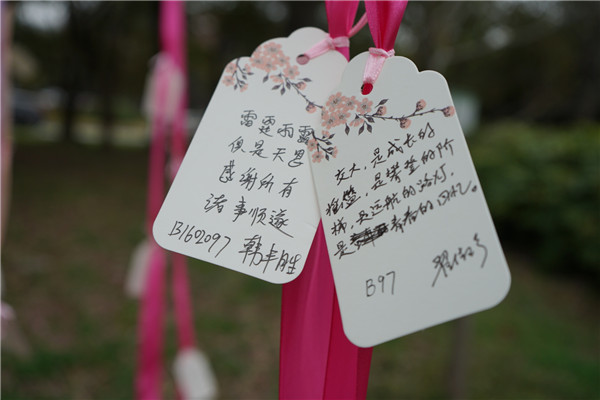 雷霆雨露
俱是天恩
感谢所有
诸事顺遂
B1602097 韩卡胜
交大,是成长的
摇篮,是攀登的阶
梯,是远航的港灯,
是青春的回忆。
B97